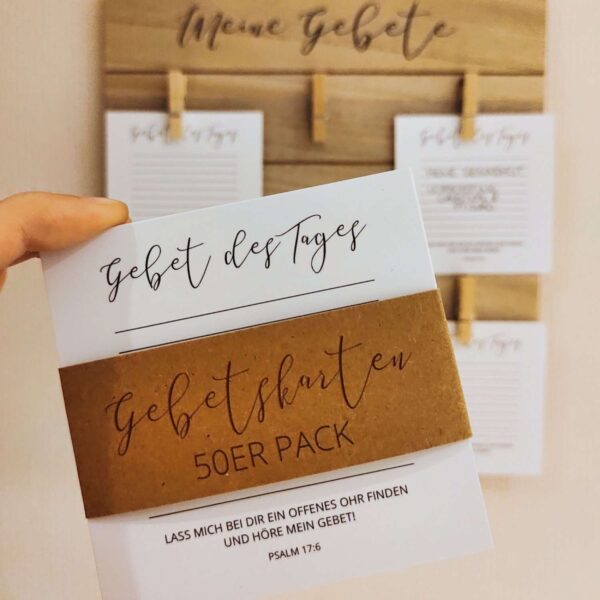 Meine Gebete
Gebet des Tages
Gebet des Tages
Gebet des Tages
Gebet des Tages
Gebetskarten
50ER PACK
LASS MICH BEI DIR EIN OFFENES OHR FINDEN
UND HÖRE MEIN GEBET!
PSALM 17:6